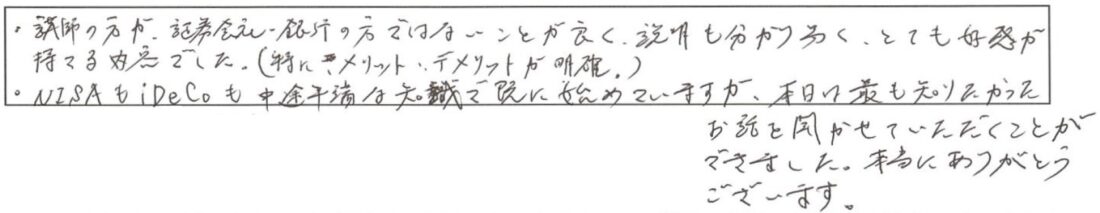 ・講師の方が、証券会社・銀行の方ではないことが良く、説明も分かり易く、とても好感が
持てる内容でした。(特に、メリット・デメリットが明確。)
・NISAもiDeCoも中途半端な知識で既に始めていますが、本日は最も知りたかった
お話を聞かせていただくことが
できました。本当にありがとう
ございます。